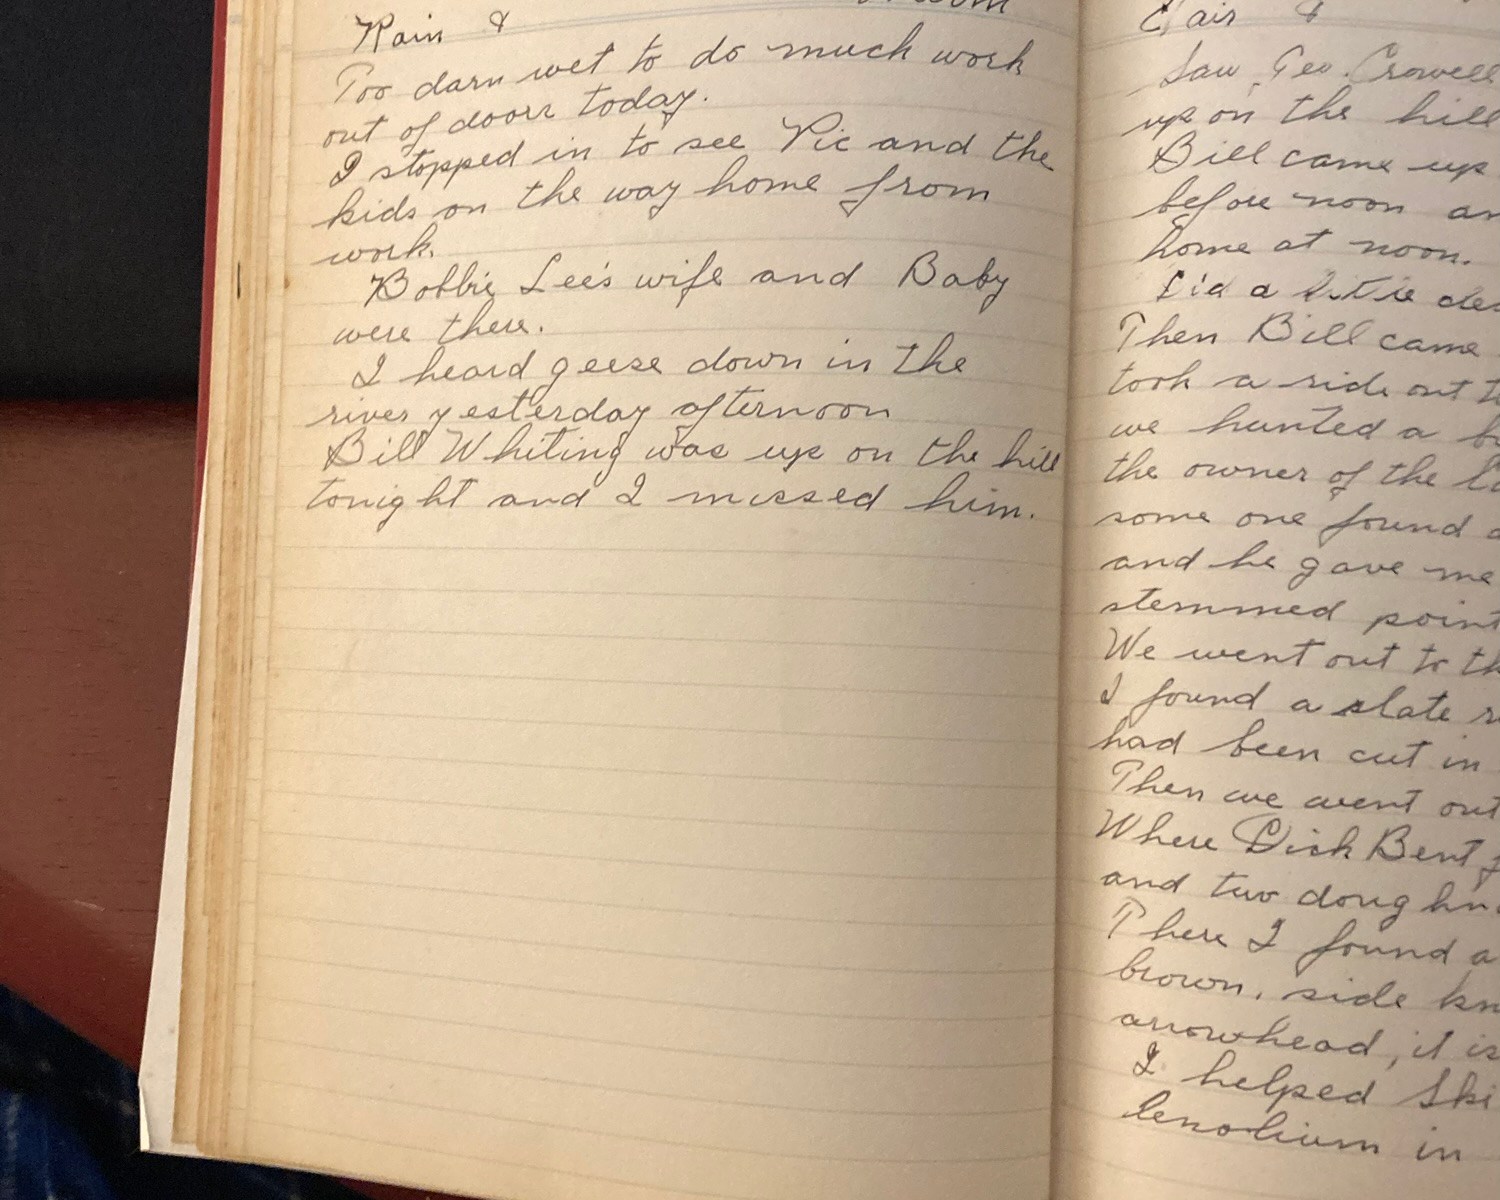 Rain &
Too darn wet to do much work
out of doors today.
I stopped in to see Vic and the
kids on the way home from
work.
Bobbie Lee's wife and Baby
were there.
I heard geese down in the
river yesterday afternoon
Bill Whiting was up on the hill
tonight and I missed him.
Clair &
Saw Geo. Crowell
up on the hill
Bill came up
before noon
home at noon.
Did a little
Then Bill came
took a ride out
we hunted a
the owner of the
some one found
and he gave me
stemmed point
We went out to
I found a slate
had been cut in
Then we went out
Where Dick Bent
and two
There I found a
brown, side
arrowhead, it is
I helped
lenolium in